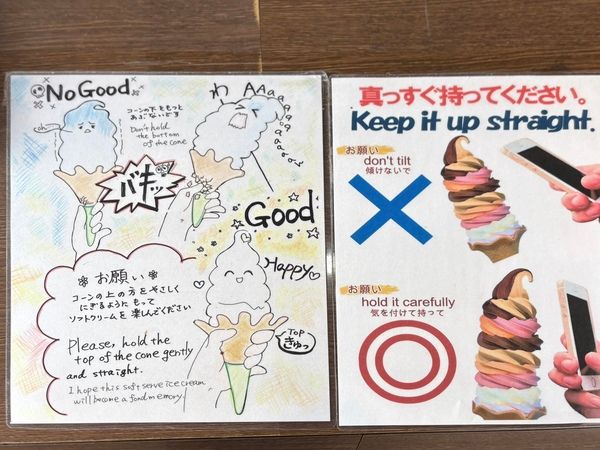 No Good
コーンの下をもっと
あぶないです
Don't hold
the bottom
of the cone
oh
わ
AAaaaaaaa
バキッ
Good
Happy
TOP
きゅっ
お願い
コーンの上の方をやさしく
にぎるように もって
ソフトクリームを 楽しんでください
Please, hold the
top of the cone gently
and straight.
I hope this soft serve ice cream
will become a fond memory.
真っすぐ持ってください。
Keep it up straight.
お願い
don't tilt
傾けないで
お願い
hold it carefully
気を付けて持って